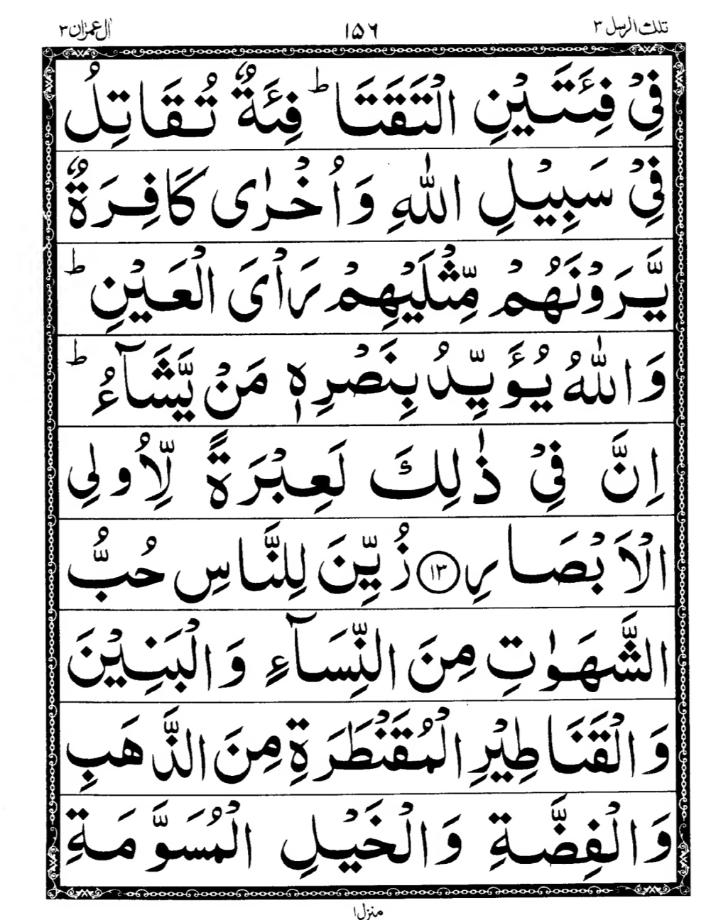 تلك الرسل ٣ ١٥٦ اٰل عمرٰن ٣
فِیْ فِئَتَیْنِ الْتَقَتَا ؕ فِئَةٌ تُقَاتِلُ
فِیْ سَبِیْلِ اللّٰهِ وَاُخْرٰی كَافِرَةٌ
یَّرَوْنَهُمْ مِّثْلَیْهِمْ رَاْیَ الْعَیْنِ ؕ
وَاللّٰهُ یُؤَیِّدُ بِنَصْرِهٖ مَنْ یَّشَآءُ ؕ
اِنَّ فِیْ ذٰلِكَ لَعِبْرَةً لِّاُولِی
الْاَبْصَارِ ﴿١٣﴾ زُیِّنَ لِلنَّاسِ حُبُّ
الشَّهَوٰتِ مِنَ النِّسَآءِ وَالْبَنِیْنَ
وَالْقَنَاطِیْرِ الْمُقَنْطَرَةِ مِنَ الذَّهَبِ
وَالْفِضَّةِ وَالْخَیْلِ الْمُسَوَّمَةِ
منزل ١